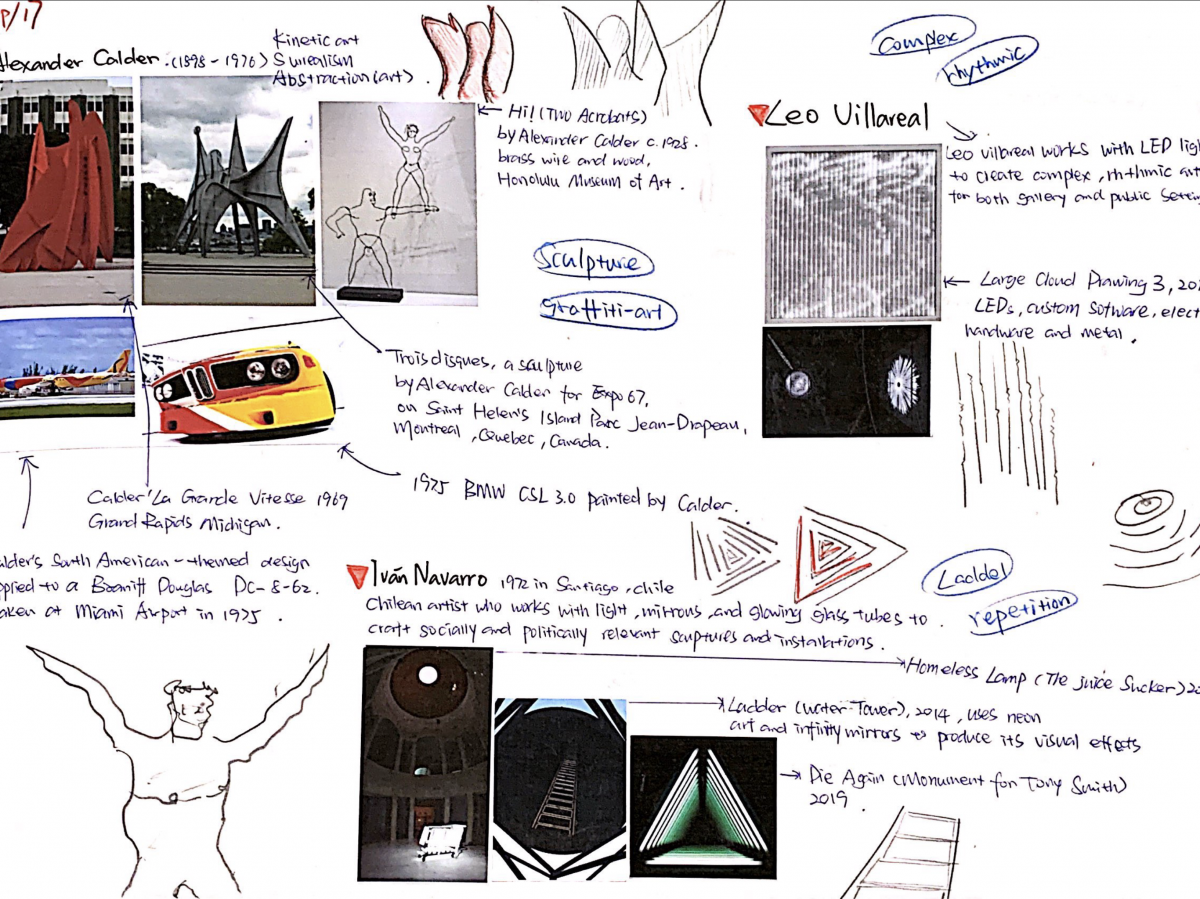 P/17
Alexander Calder. (1898-1976)
Kinetic art
Surealism
Abstraction (art).
Hi! (Two Acrobats)
by Alexander Calder c. 1928.
brass wire and wood,
Honolulu Museum of Art.
Sculpture
graffiti-art
Trois disques, a sculpture
by Alexander Calder for Expo 67,
on Saint Helen's Island Parc Jean-Drapeau,
Montreal, Quebec, Canada.
1975 BMW CSL 3.0 painted by Calder.
Calder' La Grande Vitesse 1969
Grand Rapids Michigan.
alder's South American-themed design
pplied to a Braniff Douglas DC-8-62.
aken at Miami Airport in 1975.
complex
rhythmic
Leo Villareal
Leo villareal works with LED ligh
to create complex, rhthmic art
for both gallery and public Setting
Large Cloud Drawing 3, 20
LEDs, custom software, elect
hardware and metal.
Iván Navarro 1972 in Santiago, chile
Chilean artist who works with light, mirrous, and glowing glass tubes to
craft socially and politically relevant sculptures and installations.
Laddel
repetition
Homeless Lamp (The juice Sucker) 20
Ladder (Water-Tower), 2014, uses neon
art and infinity mirrors to produce its visual effects
Die Again (Monument for Tony Smith)
2019.